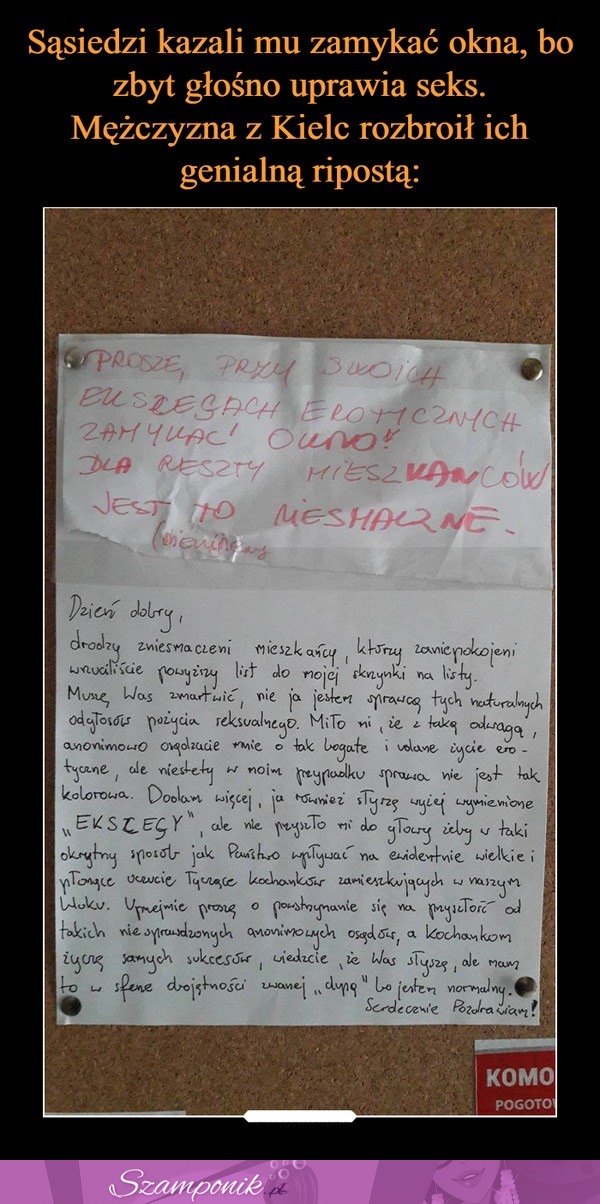 Sąsiedzi kazali mu zamykać okna, bo
zbyt głośno uprawia seks.
Mężczyzna z Kielc rozbroił ich
genialną ripostą:
PROSZE, PRZY SWOICH
EKSZEGACH EROTYCZNYCH
ZAMYKAĆ OKNO!
DLA RESZTY MIESZKAŃCÓW
JEST TO NIESMACZNE.
Dzień dobry,
drodzy zniesmaczeni mieszkańcy, którzy zaniepokojeni
wrzuciliście powyższy list do mojej skrzynki na listy.
Muszę Was zmartwić, nie ja jestem sprawcą tych naturalnych
odgłosów pożycia seksualnego. Miło mi, że z taką odwagą,
anonimowo osądzacie mnie o tak bogate i udane życie ero-
tyczne, ale niestety w moim przypadku sprawa nie jest tak
kolorowa. Dodam więcej, ja również słyszę wyżej wymienione
„EKSCESY", ale nie przyszło mi do głowy żeby w taki
okrutny sposób jak Państwo wpływać na ewidentnie wielkie i
płonące uczucie łączące kochanków zamieszkujących w naszym
bloku. Uprzejmie proszę o powstrzymanie się na przyszłość od
takich niesprawdzonych anonimowych osądów, a kochankom
życzę samych sukcesów, wiedzcie, że Was słyszę, ale mam
to w sferze obojętności zwanej „dupą" bo jestem normalny.
Serdecznie Pozdrawiam!
KOMO
POGOTO
Szamponik.pl